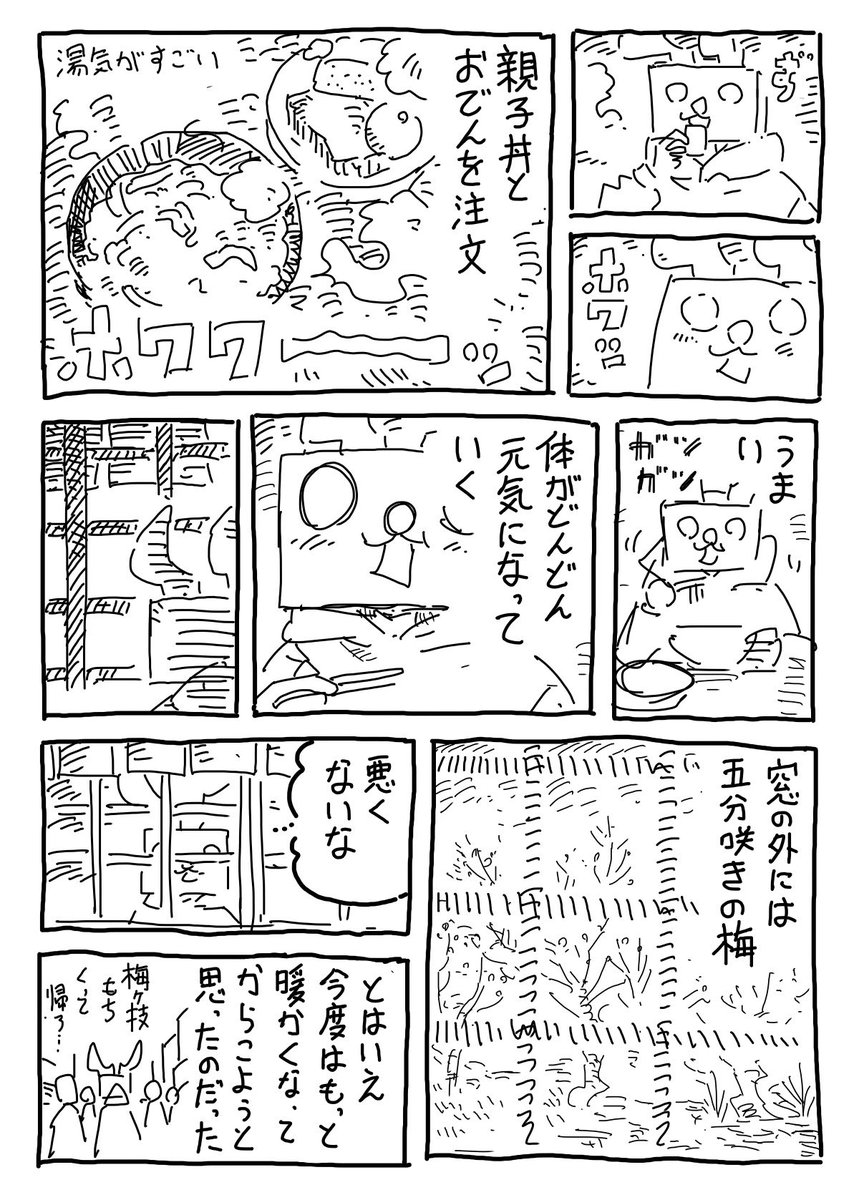 ポワ
ポワ゜
親子丼と
おでんを注文
湯気がすごい
ホワワー
うま
い
ガッ
ガッ
体がどんどん
元気になって
いく
窓の外には
五分咲きの梅
悪く
ないな
…
とはいえ
今度はもっと
暖かくなって
からこようと
思ったのだった
梅ヶ枝
もち
くって
帰ろ…